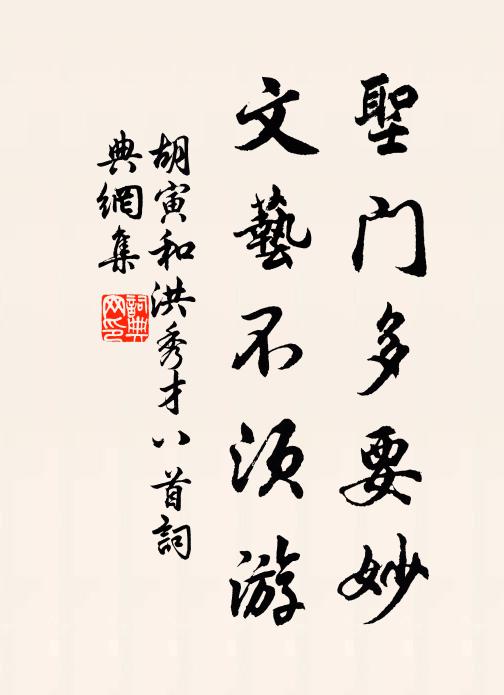 聖门多要妙
文藝不须游
胡寅和洪秀才八首詞
典網集
詞典网印